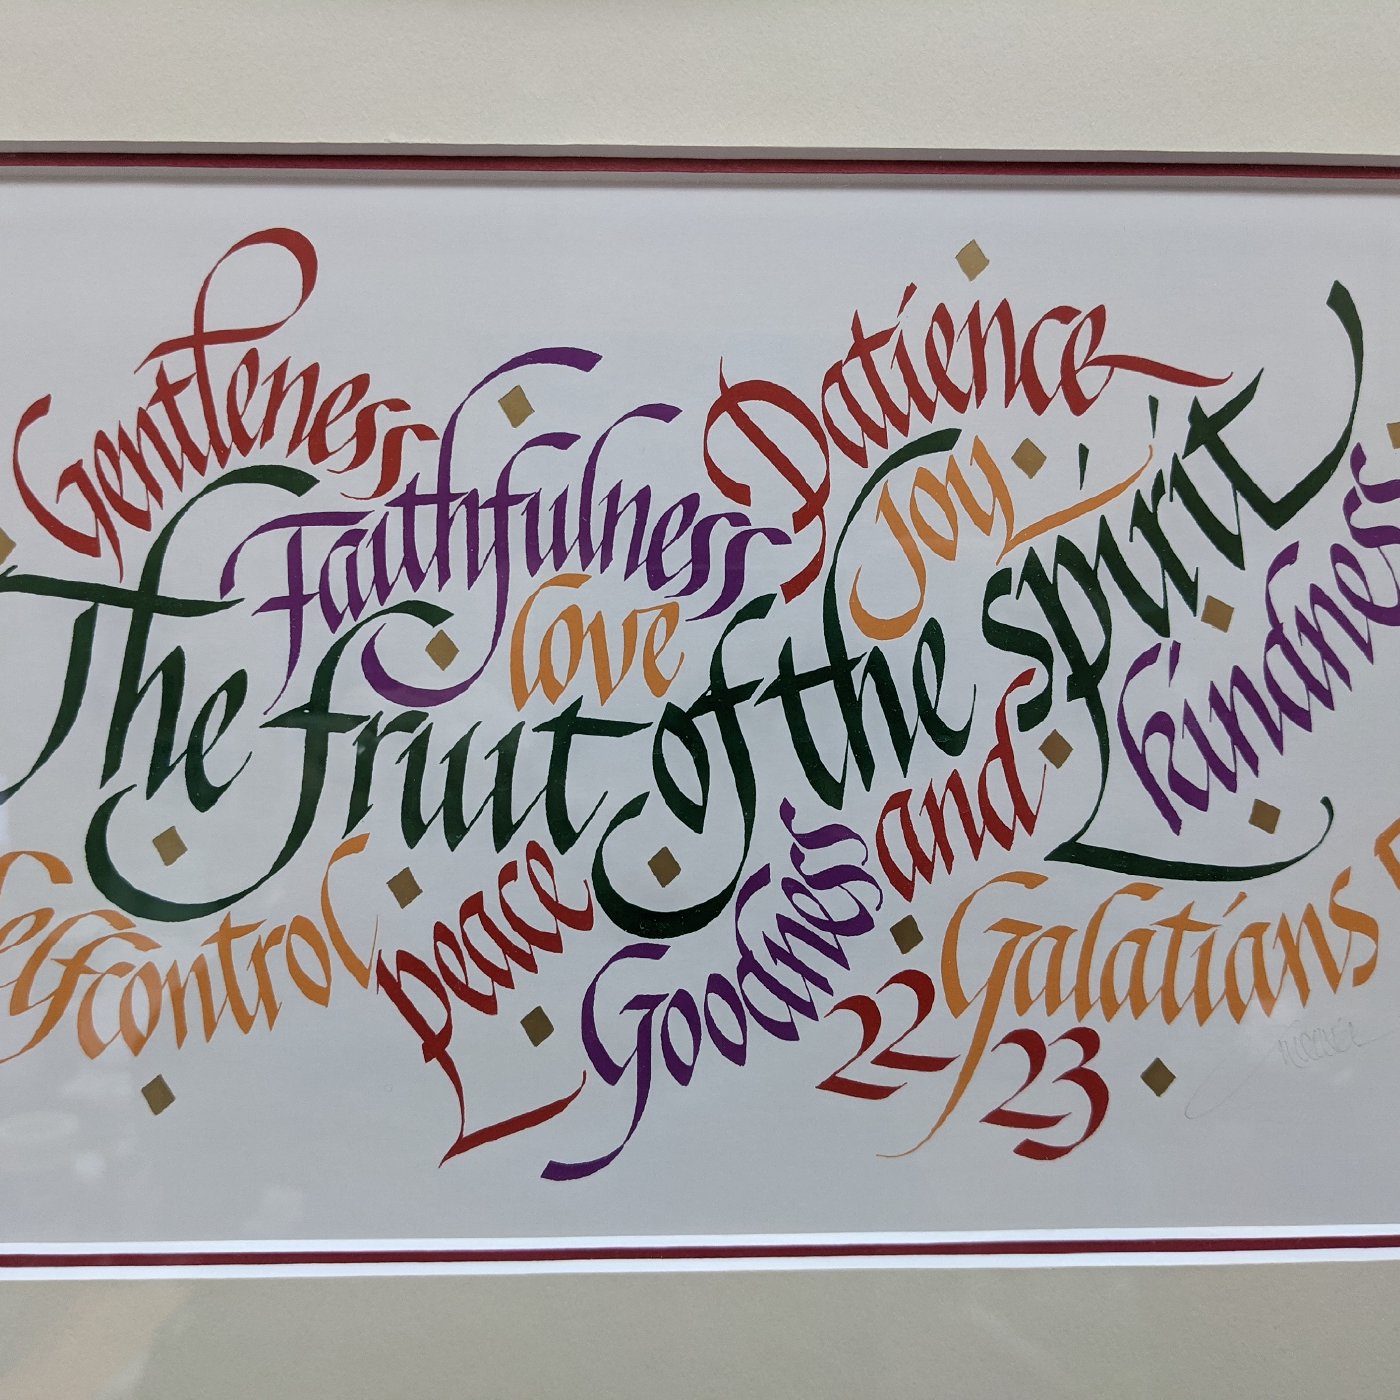 Gentleness
Faithfulness
Patience
Joy
love
The fruit of the spirit
kindness
and
Selfcontrol
peace
Goodness
Galatians 5
22
23